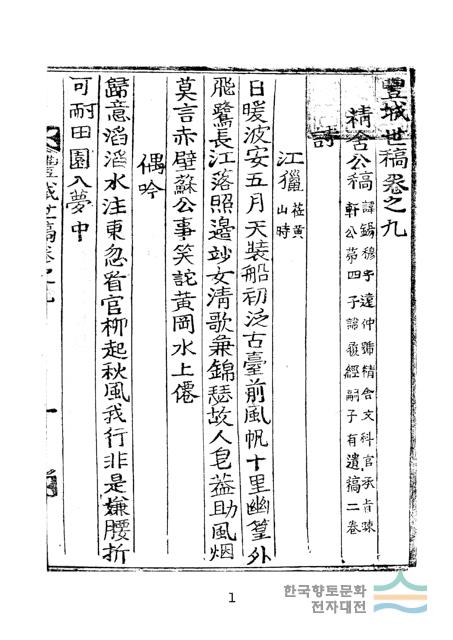 豐城世稿卷之九
精舍公稿 諱錫穆字達仲號精舍文科官承旨疎
軒公第四子諱經嗣子有遺稿二卷
詩
江獵 莅黃
山時
日暖波安五月天裝船初泛古臺前風帆十里幽篁外
飛鷺長江落照邊妙女清歌兼錦瑟故人皂蓋助風烟
莫言赤壁蘇公事笑詑黃岡水上僊
偶吟
歸意滔滔水注東忽看官柳起秋風我行非是嫌腰折
可耐田園入夢中
豐城世稿卷之九 一
1
한국향토문화
전자대전